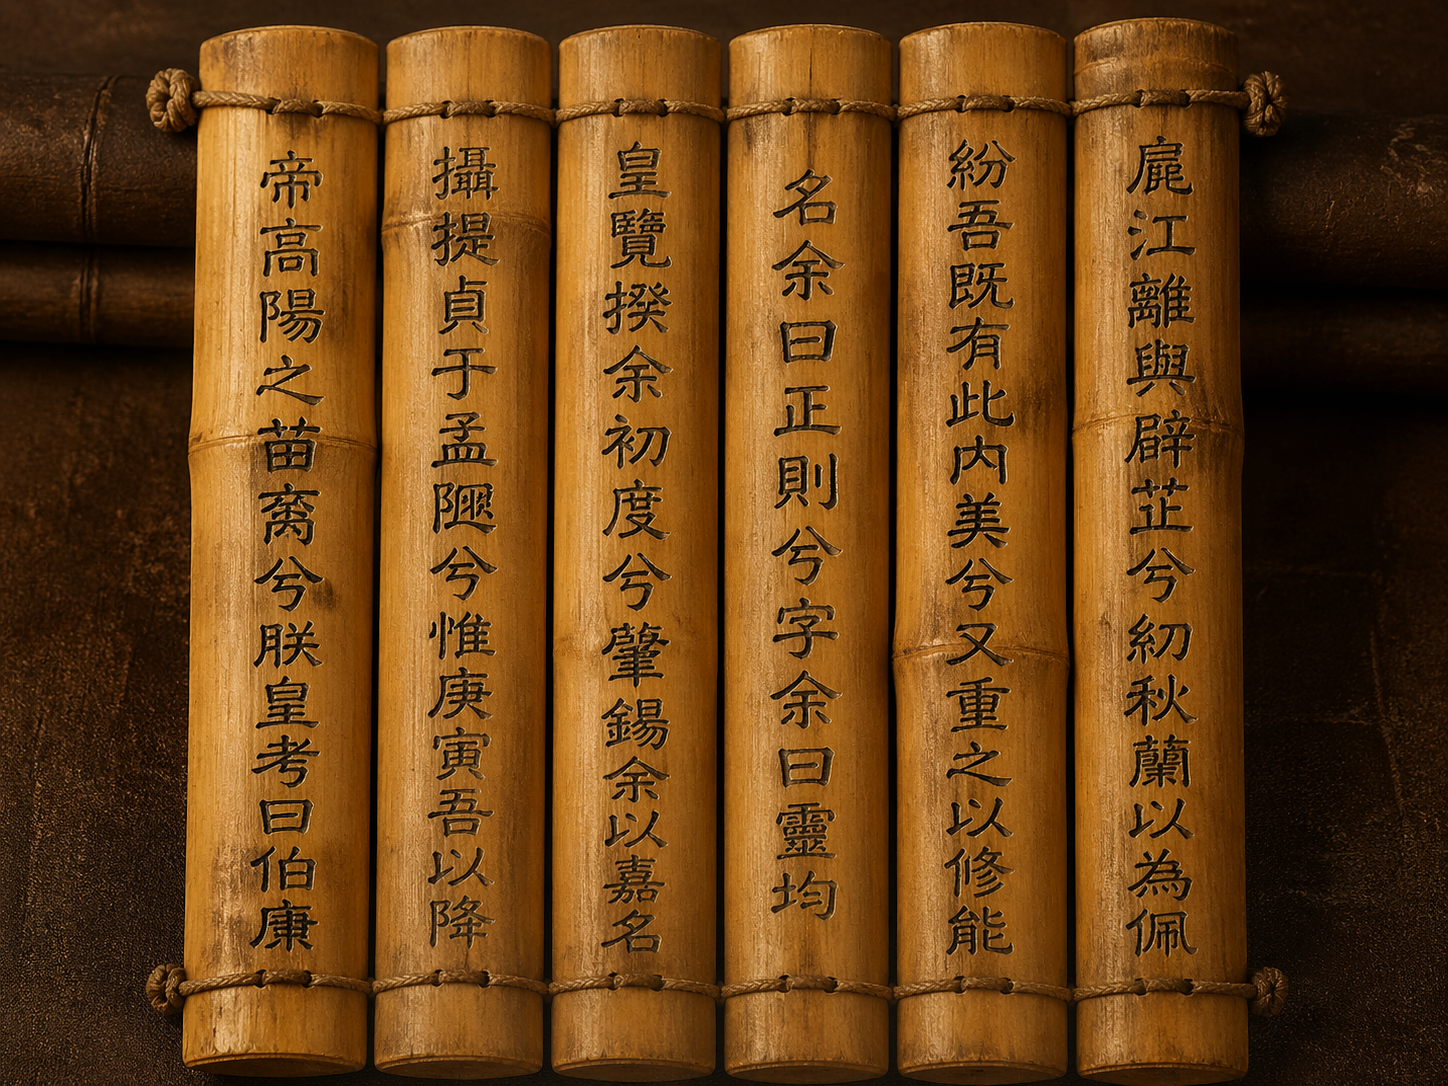 帝高陽之苗裔兮朕皇考曰伯康
攝提貞于孟陬兮惟庚寅吾以降
皇覽揆余初度兮肇錫余以嘉名
名余曰正則兮字余曰靈均
紛吾既有此内美兮又重之以修能
扈江離與辟芷兮紉秋蘭以為佩